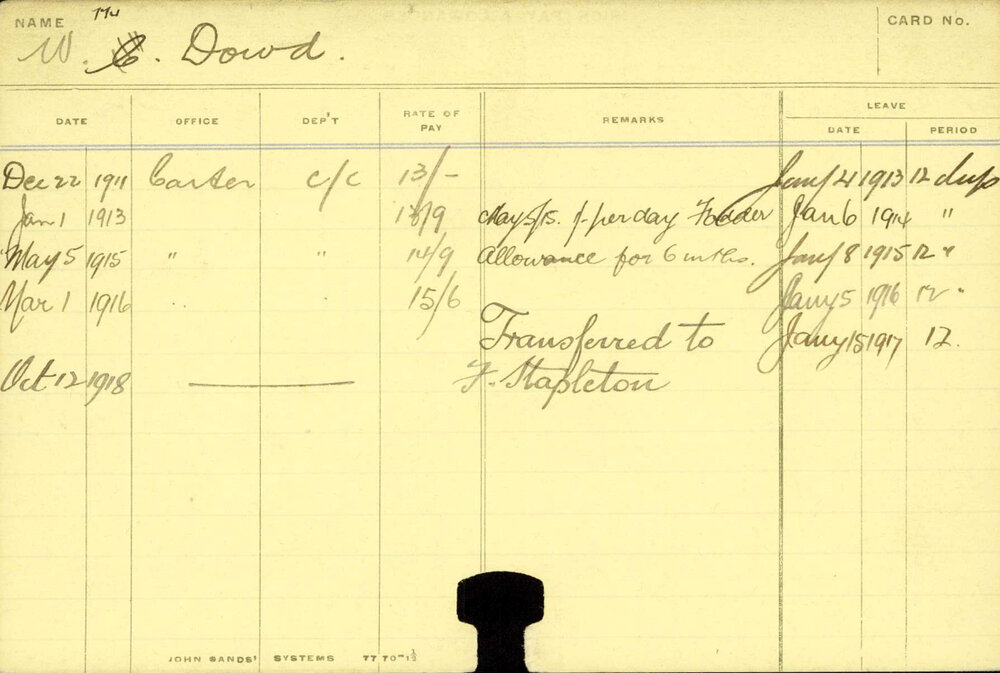 NAME
W. C. Dowd.
CARD No.
DATE OFFICE DEP'T RATE OF PAY REMARKS LEAVE
DATE PERIOD
Dec 22 1911 Carter c/c 13/- Jany 4 1913 12 days
Jan 1 1913 13/9 May 5/15. 1/- per day Fodder Jan 6 1914 "
May 5 1915 " " 14/9 Allowance for 6 mths. Jany 8 1915 12 "
Mar 1 1916 15/6 Jany 5 1916 12 "
Transferred to Jany 15 1917 12.
Oct 12 1918 F. Stapleton
JOHN SANDS' SYSTEMS 7770-1½